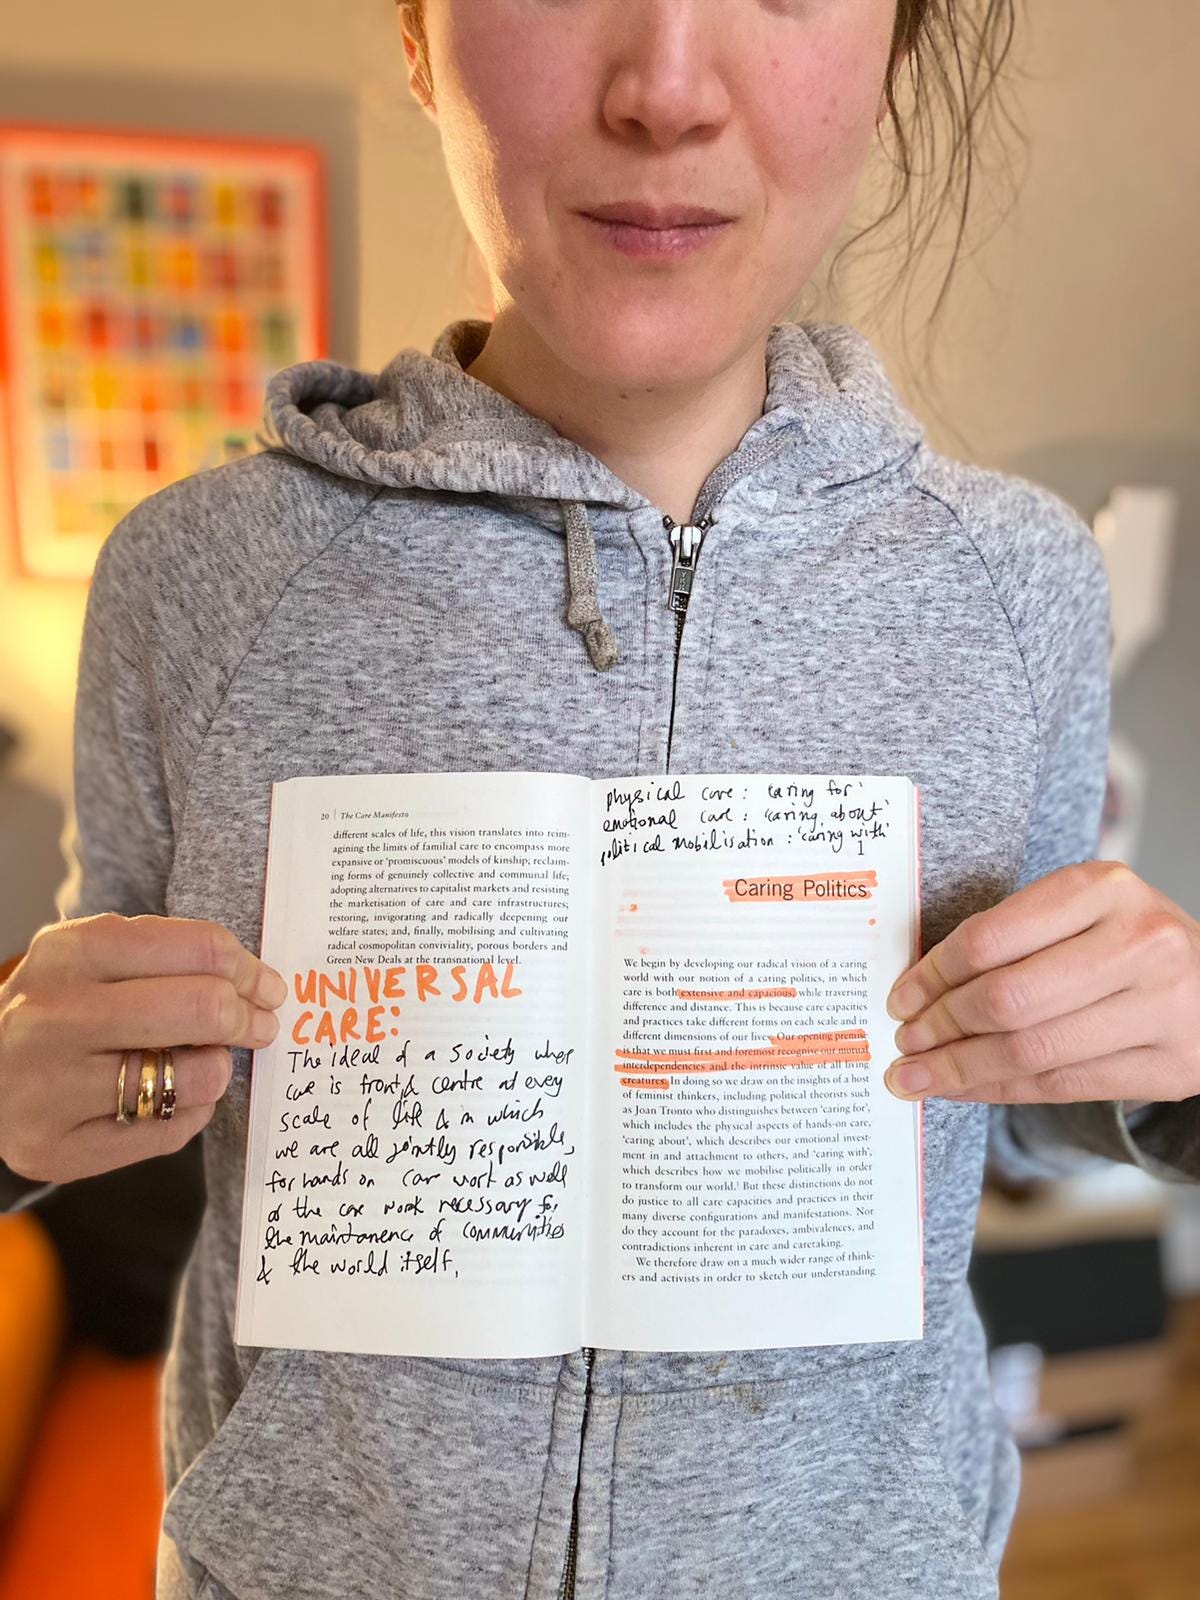 20 | The Care Manifesto
different scales of life, this vision translates into reim-
agining the limits of familial care to encompass more
expansive or ‘promiscuous’ models of kinship; reclaim-
ing forms of genuinely collective and communal life;
adopting alternatives to capitalist markets and resisting
the marketisation of care and care infrastructures;
restoring, invigorating and radically deepening our
welfare states; and, finally, mobilising and cultivating
radical cosmopolitan conviviality, porous borders and
Green New Deals at the transnational level.
UNIVERSAL
CARE:
The ideal of a society where
care is front & centre at every
scale of life & in which
we are all jointly responsible,
for hands on care work as well
as the care work necessary for
the maintanence of communities
& the world itself.
physical care: 'caring for'
emotional care: 'caring about'
political mobilisation: 'caring with'
1
Caring Politics
We begin by developing our radical vision of a caring
world with our notion of a caring politics, in which
care is both extensive and capacious, while traversing
difference and distance. This is because care capacities
and practices take different forms on each scale and in
different dimensions of our lives. Our opening premise
is that we must first and foremost recognise our mutual
interdependencies and the intrinsic value of all living
creatures. In doing so we draw on the insights of a host
of feminist thinkers, including political theorists such
as Joan Tronto who distinguishes between ‘caring for’,
which includes the physical aspects of hands-on care,
‘caring about’, which describes our emotional invest-
ment in and attachment to others, and ‘caring with’,
which describes how we mobilise politically in order
to transform our world.¹ But these distinctions do not
do justice to all care capacities and practices in their
many diverse configurations and manifestations. Nor
do they account for the paradoxes, ambivalences, and
contradictions inherent in care and caretaking.
We therefore draw on a much wider range of think-
ers and activists in order to sketch our understanding